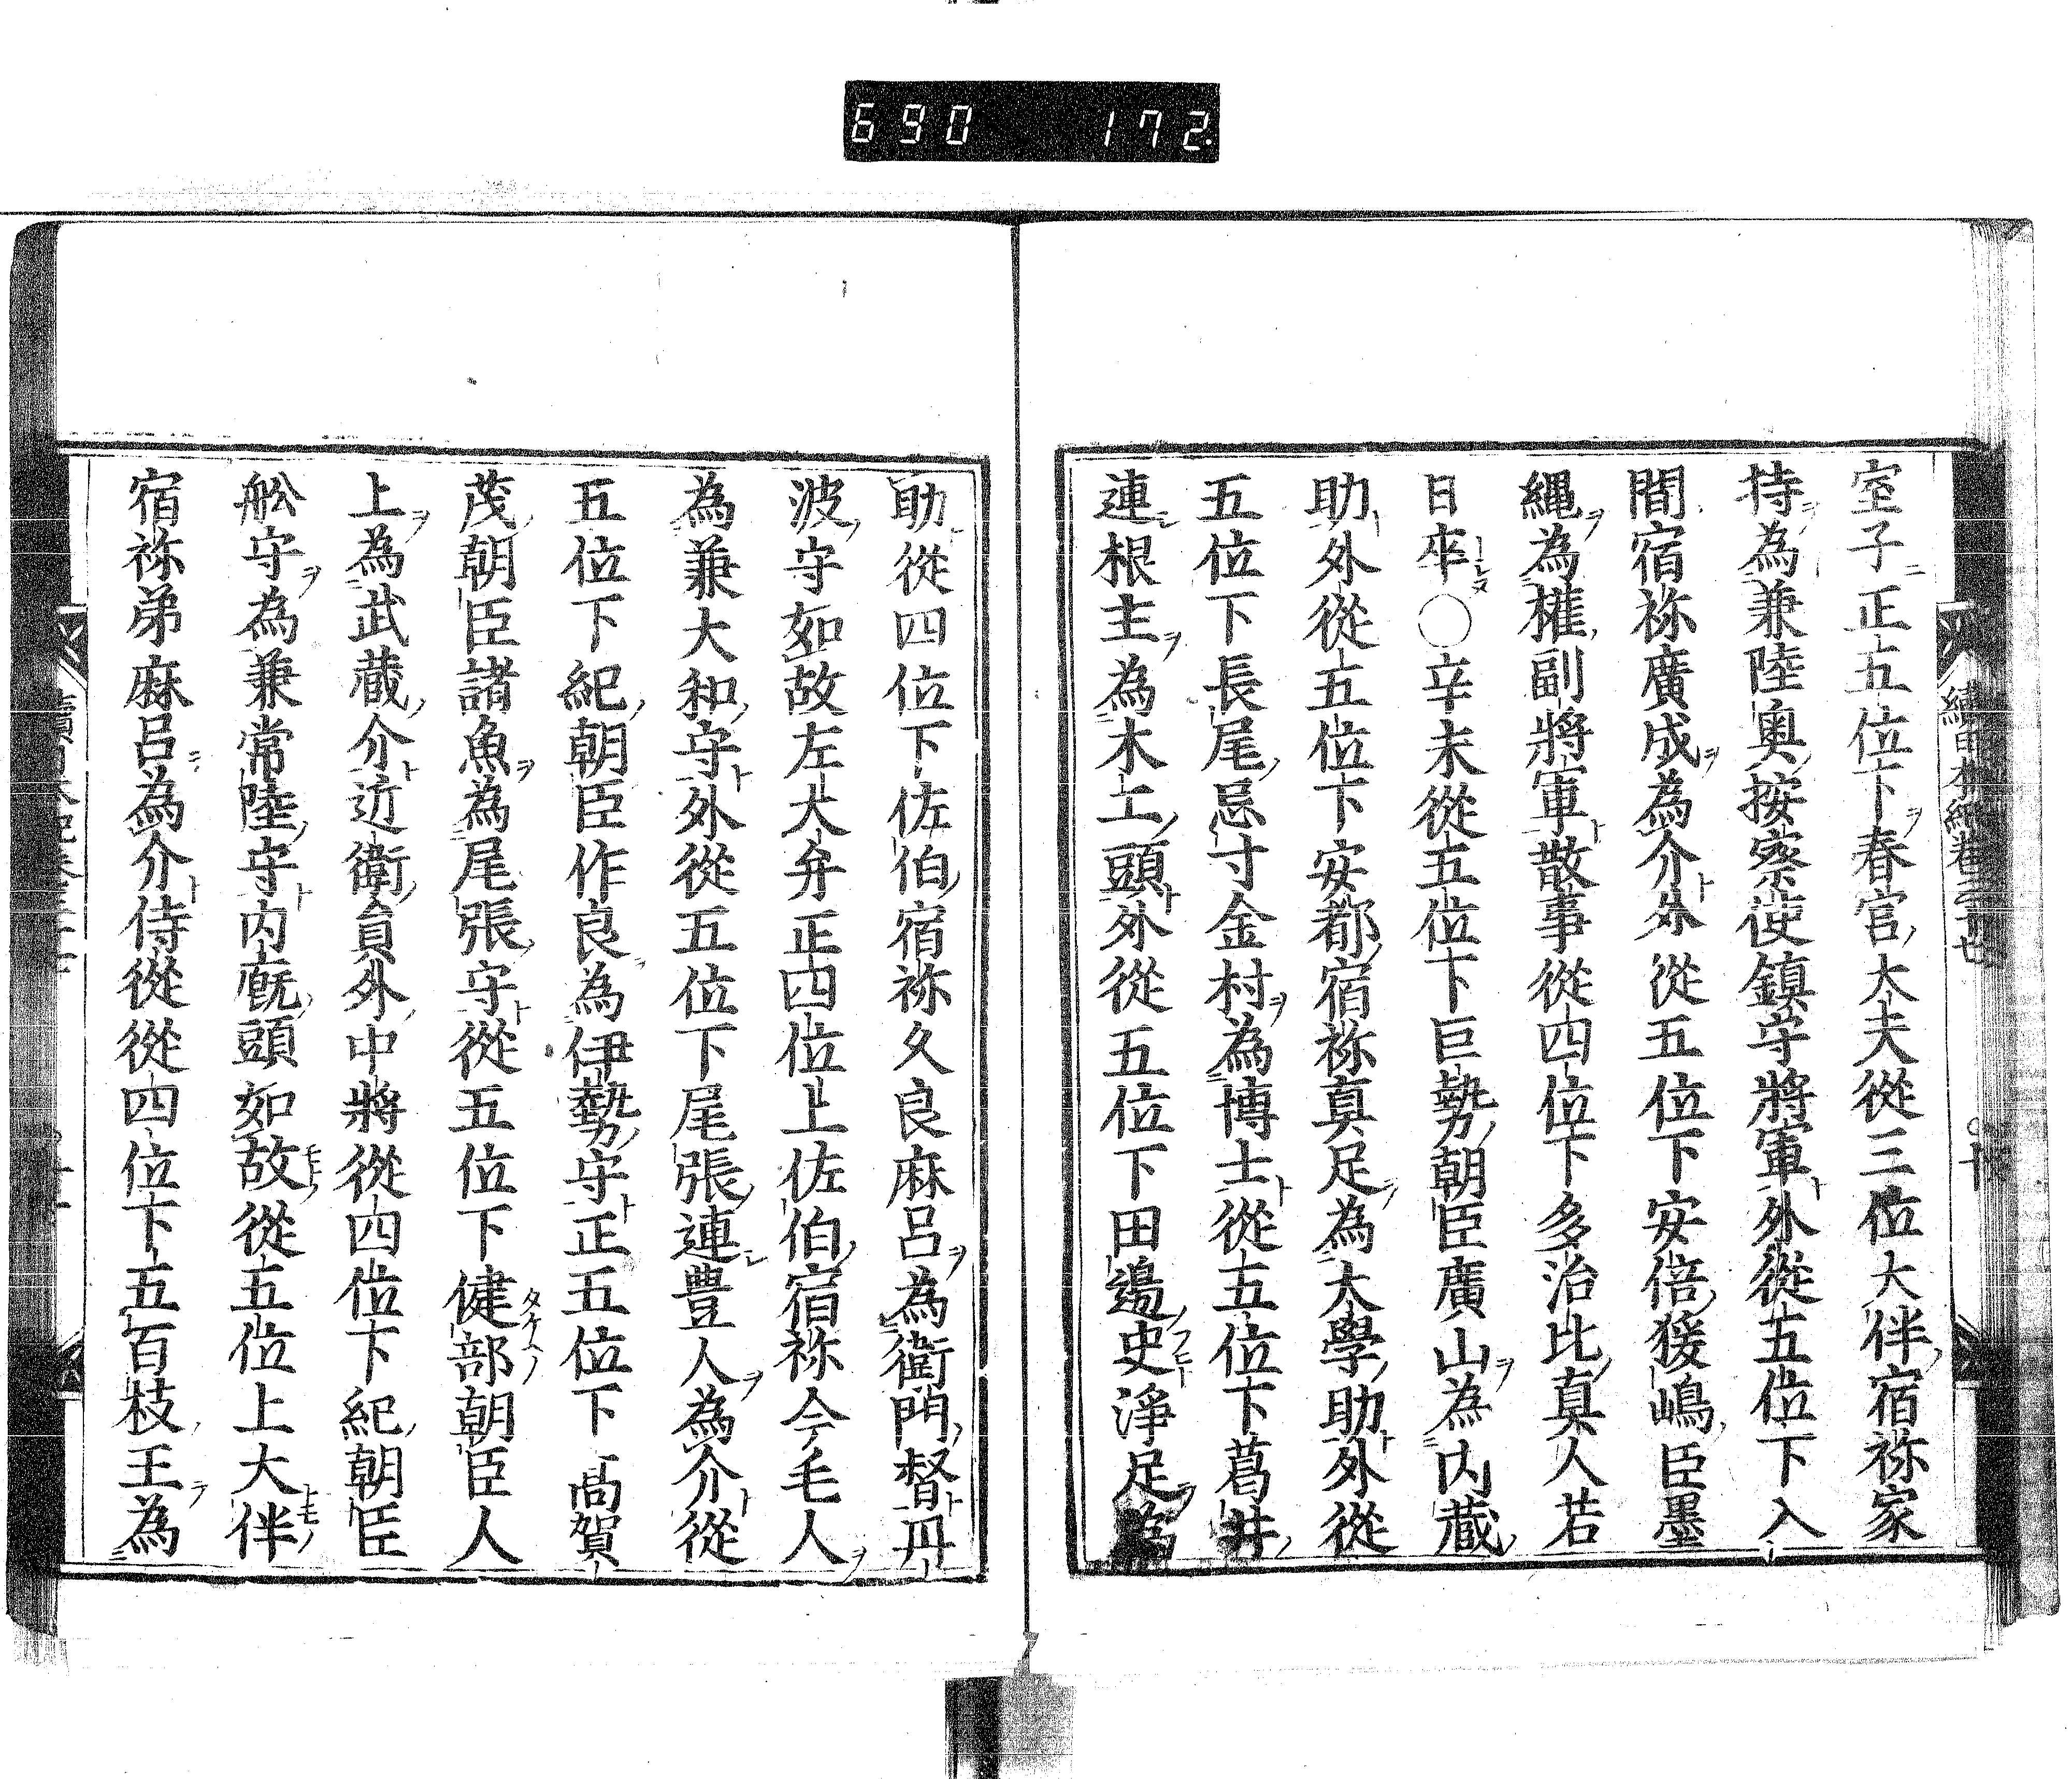 690 172
續日本紀卷三十七
室子正五位下春宮大夫從三位大伴宿祢家
持為兼陸奧按察使鎮守將軍外從五位下入
間宿祢廣成為介外從五位下安倍猨嶋臣墨
繩為權副將軍散事從四位下多治比真人若
日卒〇辛未從五位下巨勢朝臣廣山為内藏
助外從五位下安都宿祢真足為大學助外從
五位下長尾忌寸金村為博士從五位下葛井
連根主為木工頭外從五位下田邊史淨足為
助從四位下佐伯宿祢久良麻呂為衛門督丹
波守如故左大弁正四位上佐伯宿祢今毛人
為兼大和守外從五位下尾張連豊人為介從
五位下紀朝臣作良為伊勢守正五位下高賀
茂朝臣諸魚為尾張守從五位下健部朝臣人
上為武藏介近衛員外中將從四位下紀朝臣
舩守為兼常陸守内厩頭如故從五位上大伴
宿祢弟麻呂為介侍從從四位下五百枝王為